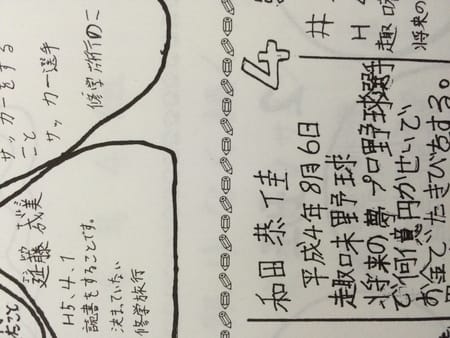 サッカーをする
こと
サッカー選手
修学旅行のこ
藤 成美
H5.4.1
読書をすることです。
決まっていない
修学旅行
こと
4
井
H4
趣味
将来の
和田恭佳
平成4年8月6日
趣味野球
将来の夢プロ野球選手
で何億円かせいで
お金でいたきびをする。